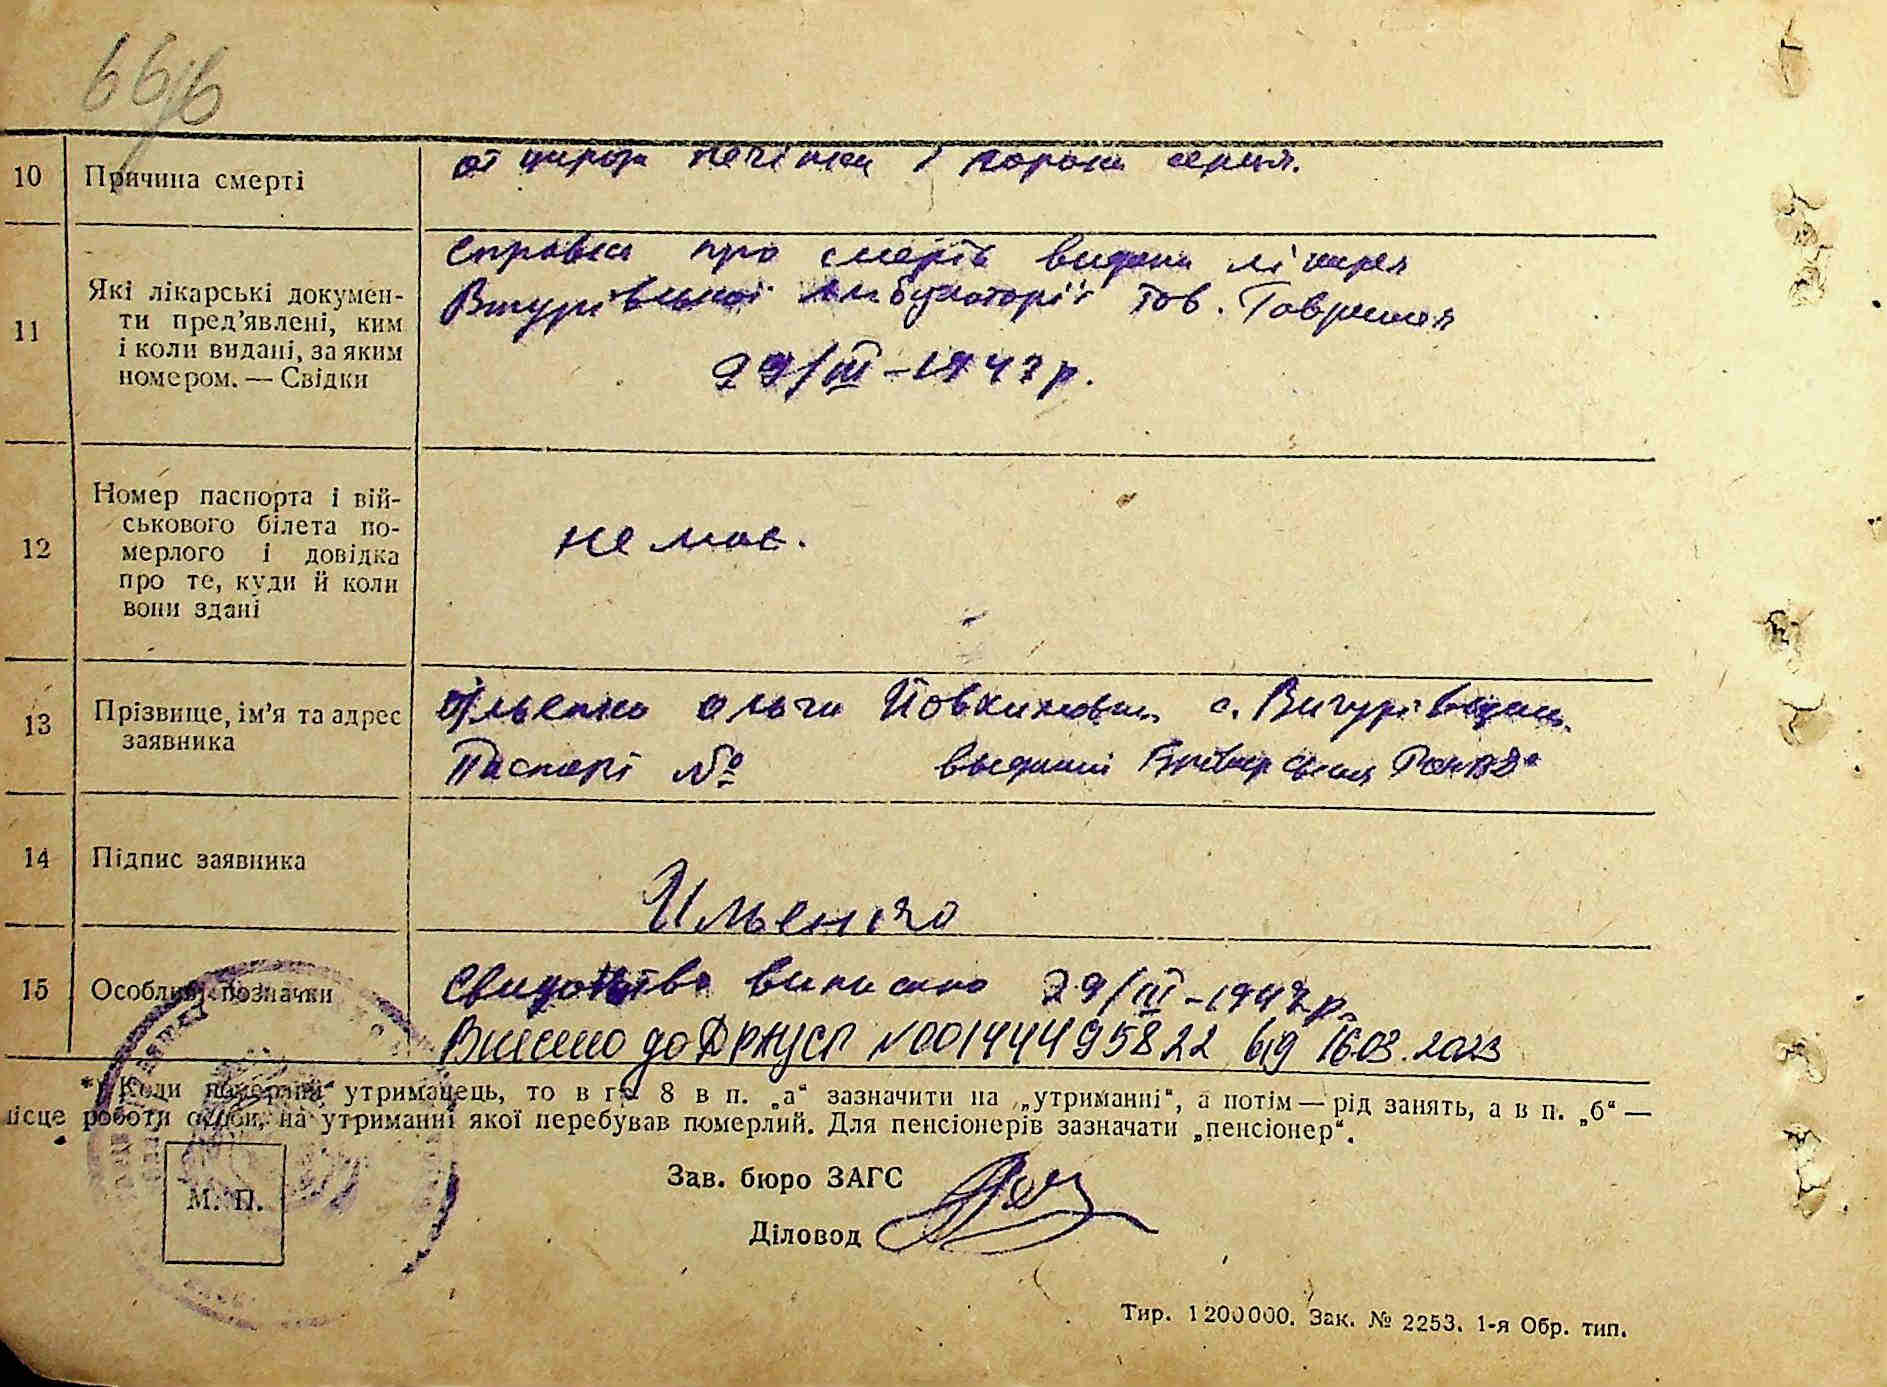 66/6
10 Причина смерті
от цироза печінки і порока серця.
11 Які лікарські докумен-
ти пред’явлені, ким
і коли видані, за яким
номером. — Свідки
Справка про смерть видана лікарем
Вигурівської Амбулаторії тов.
29/III – 1947 р.
12 Номер паспорта і вій-
ськового білета по-
мерлого і довідка
про те, куди й коли
вони здані
не має.
13 Прізвище, ім’я та адрес
заявника
Ольга с. Вигурівщина.
Паспорт №
14 Підпис заявника
Ильенко
15 Особливі позначки
Свидоцтво виписано 29/III – 1947 р.
Внесено до ДРАЦСГ №00144495822 від 16.03.2023
*) Коли померлий утриманець, то в гр. 8 в п. „а“ зазначити на „утриманні“, а потім — рід занять, а в п. „б“ —
місце роботи особи, на утриманні якої перебував померлий. Для пенсіонерів зазначати „пенсіонер“.
М. П.
Зав. бюро ЗАГС
Діловод
Тир. 1200000. Зак. № 2253. 1-я Обр. тип.